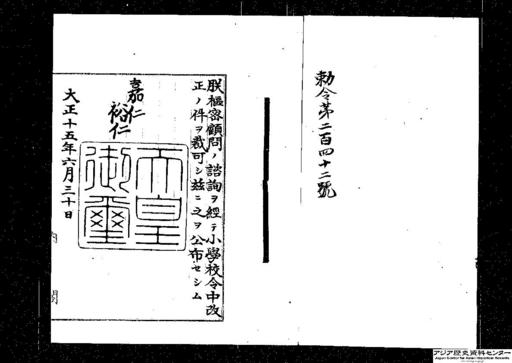 勅令第二百四十二號
朕樞密顧問ノ諮詢ヲ經テ小學校令中改
正ノ件ヲ裁可シ茲ニ之ヲ公布セシム
嘉仁
裕仁
天皇
御璽
大正十五年六月三十日
内
閣
アジア歴史資料センター
Japan Center for Asian Historical Records